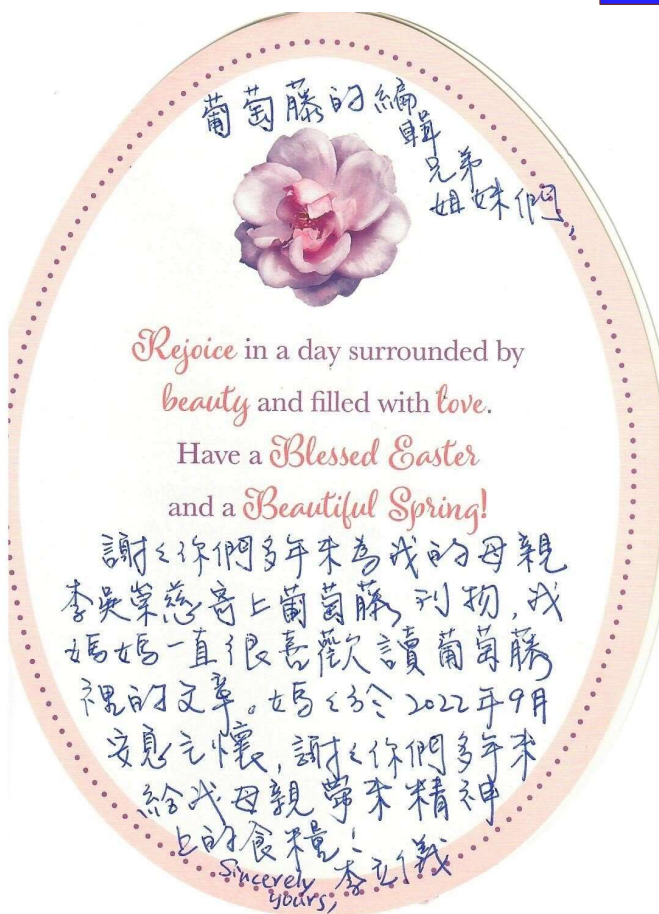 葡萄藤的編
輯
兄弟
姐妹們,
Rejoice in a day surrounded by
beauty and filled with love.
Have a Blessed Easter
and a Beautiful Spring!
謝々你們多年来為我的母親
李吳榮慈寄上葡萄藤刊物,我
媽媽一直很喜歡讀葡萄藤
裡的文章。媽々於2022年9月
安息主懷,謝々你們多年来
給我母親帶来精神
上的食糧!
Sincerely 李立義
yours,